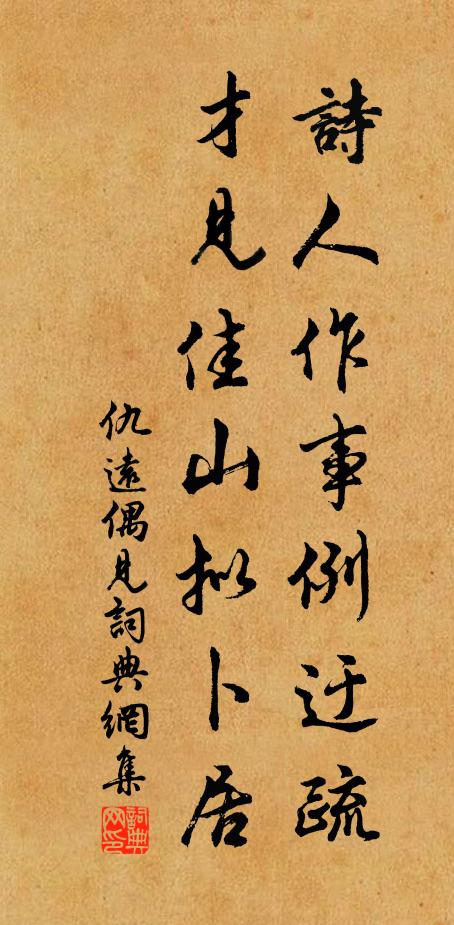 詩人作事例迂疏
才見佳山擬卜居
仇遠偶見詞典網集
詞典
网印